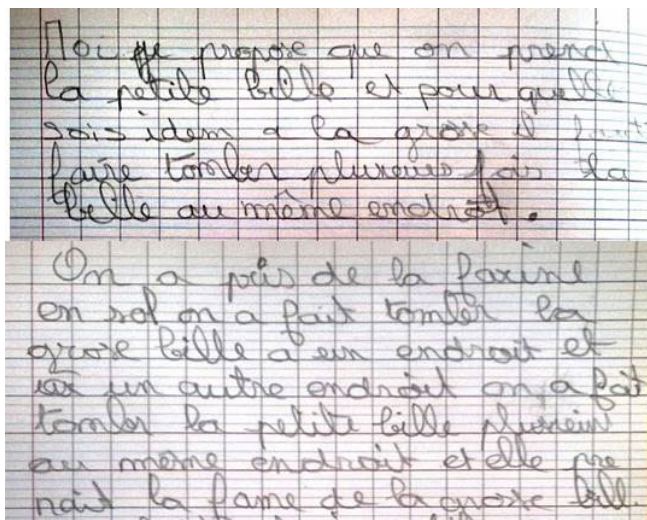 Moi je propose que on prend
la petite bille et pour quelle
sois idem a la grose il faut
faire tomber plusieurs fois la
bille au même endroit.
On a pris de la farine
en sol on a fait tomber la
grose bille a un endroit et
un autre endroit on a fait
tomber la petite bille plusieur
au meme endroit et elle pre
nait la fame de la grosse bill.